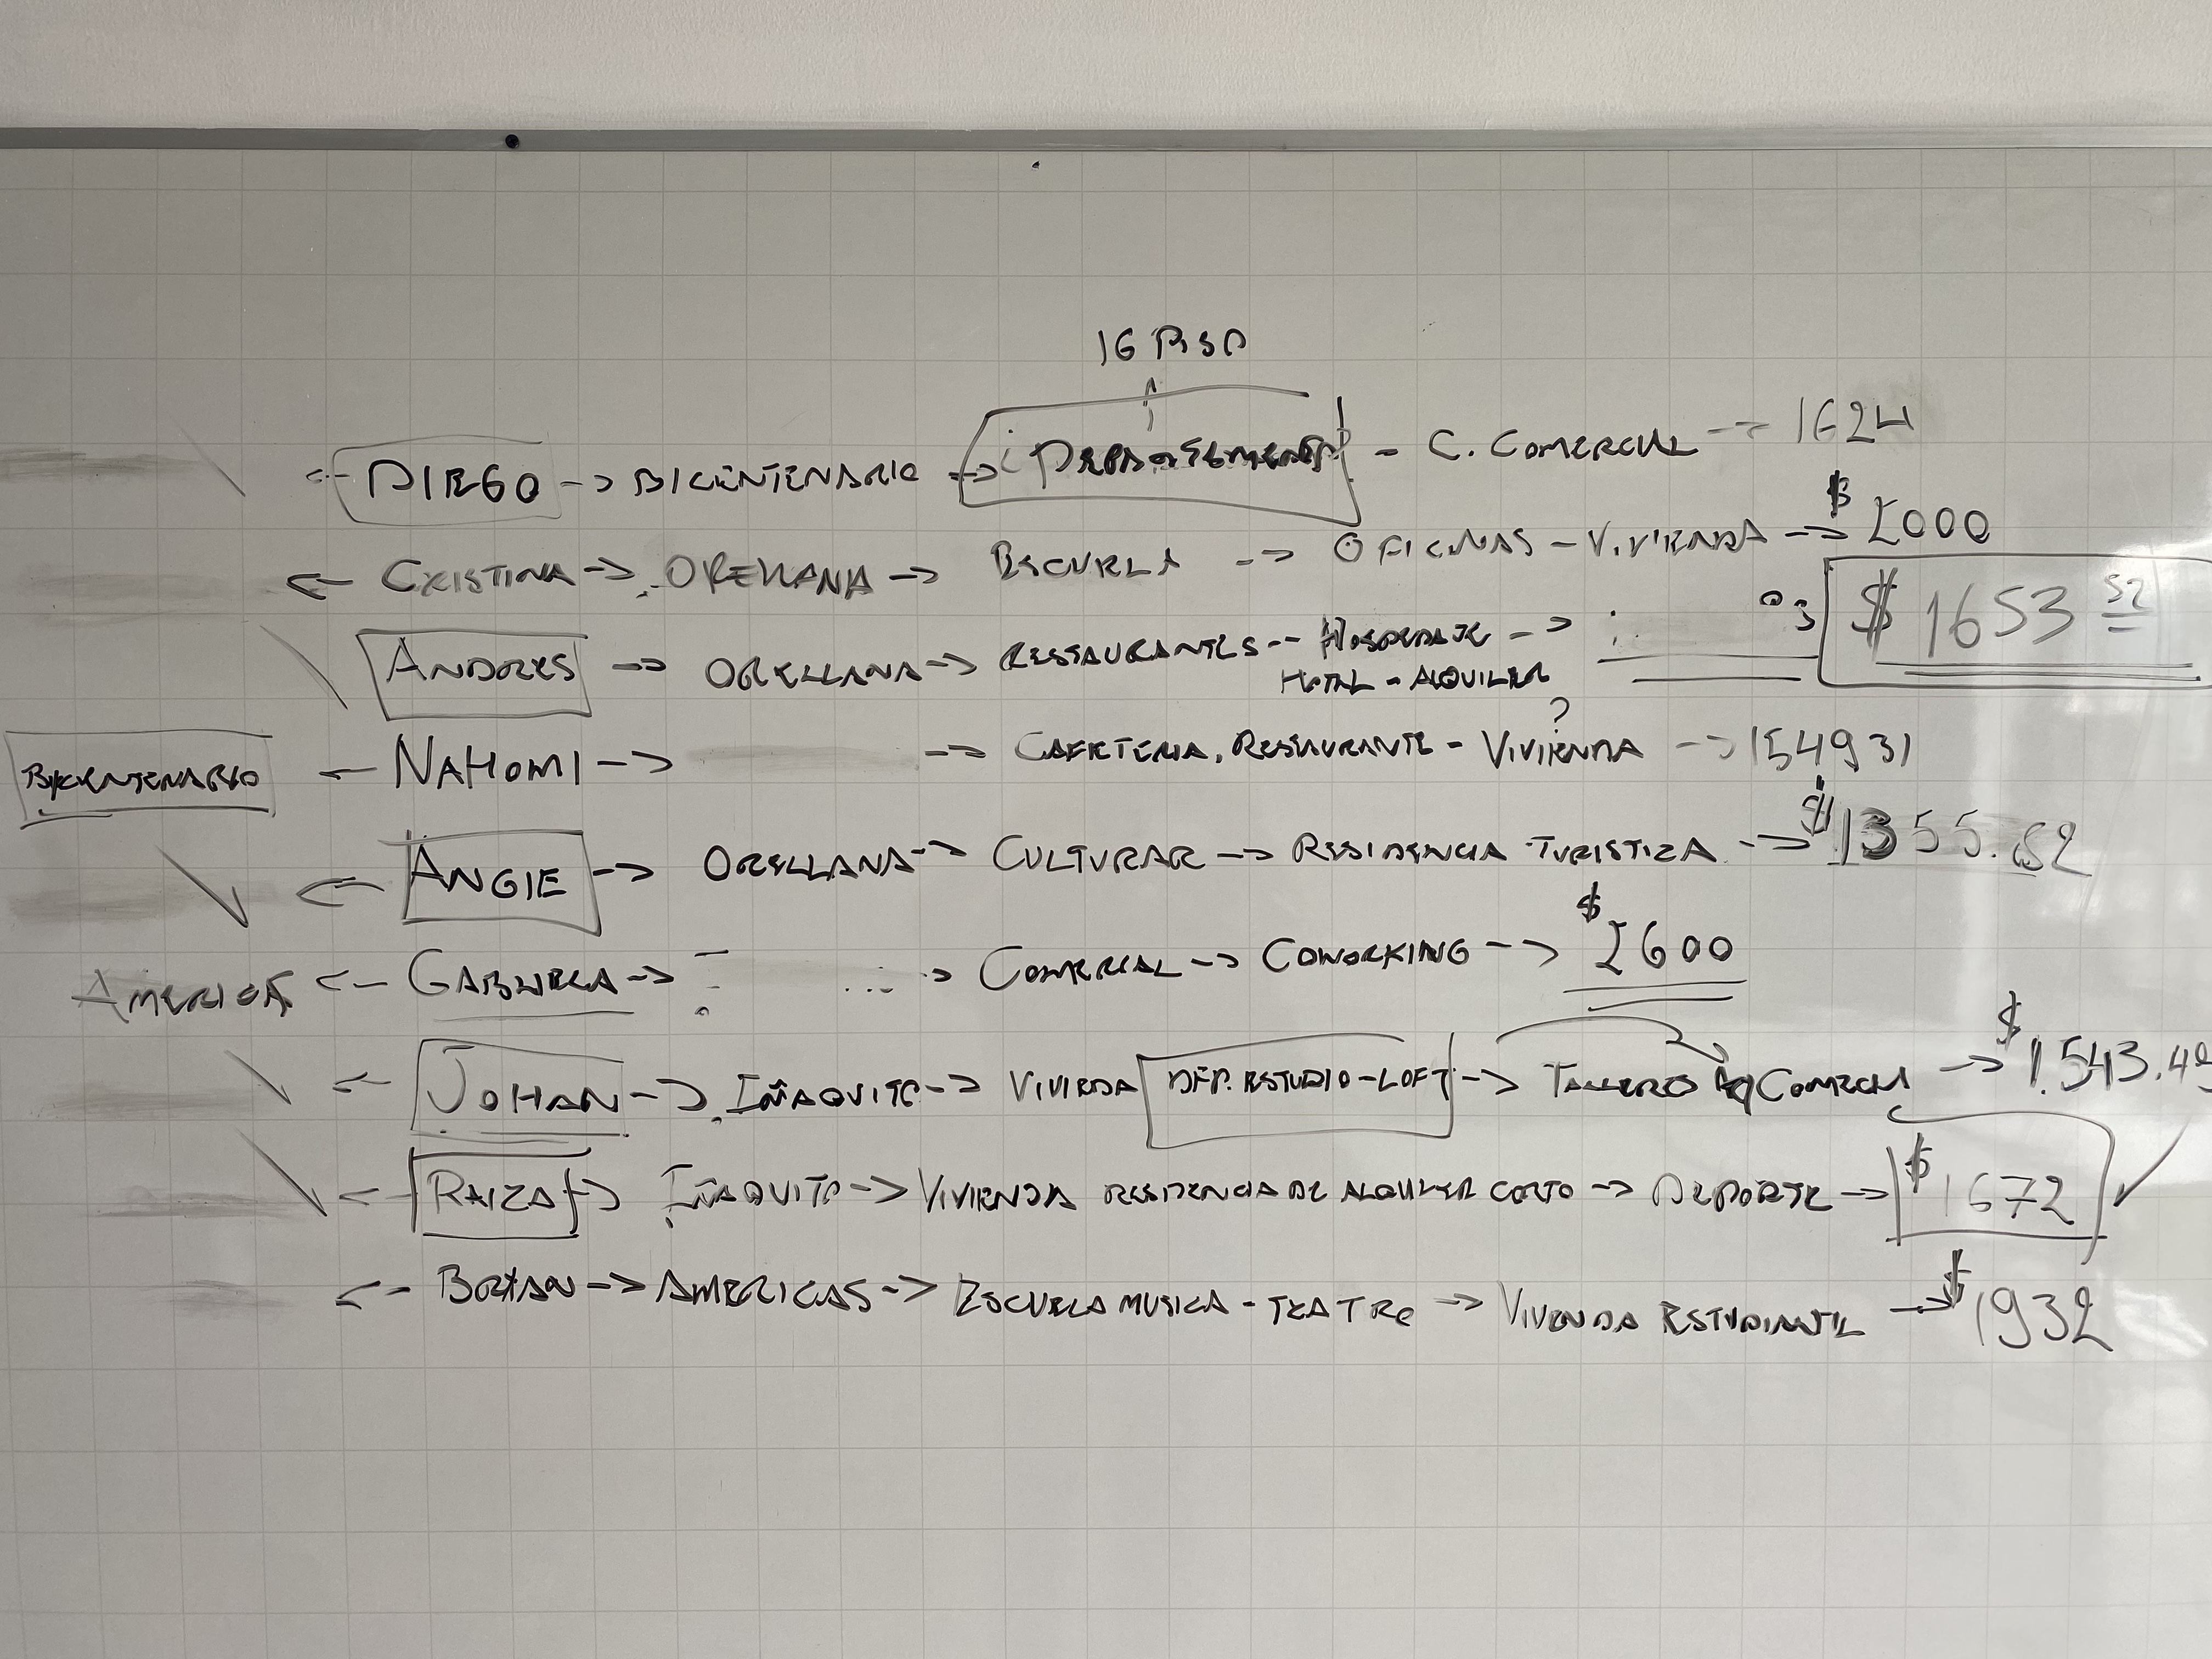 16 PISO
← DIEGO → BICENTENARIO → DEPARTAMENTO - C. COMERCIAL → 1624
← CRISTINA → ORELLANA → ESCUELA → OFICINAS - VIVIENDA → $ 2000
ANDRES → ORELLANA → RESTAURANTES - HOSPEDAJE → $ 1653 52
HOTAL - ALQUILER
?
BICENTENARIO ← NAHOMI → → CAFETERIA, RESTAURANTE - VIVIENDA → 154931
← ANGIE → ORELLANA → CULTURAR → RESIDENCIA TURISTIZA → $ 1355.62
AMERICA ← GABRIELA → → COMERCIAL → COWORKING → $ 2600
← JOHAN → IÑAQUITO → VIVIEDA DEP. ESTUDIO - LOFT → COMERCI → $ 1.543.42
← RAIZA → IÑAQUITO → VIVIENDA RESIDENCIA DE ALQUILER CORTO → DEPORTE → $ 1672
← BRYAN → AMERICAS → ESCUELA MUSICA - TEATRO → VIVIENDA ESTUDIANTIL → $ 1932